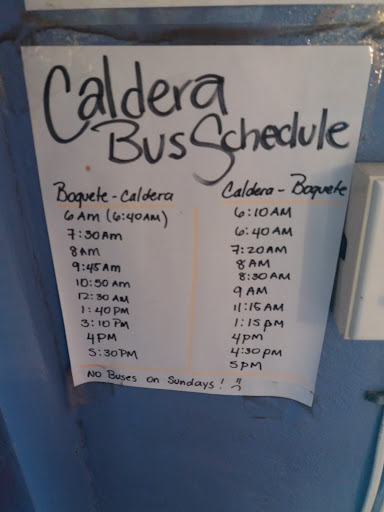 Caldera
Bus Schedule
Boquete - Caldera
6 Am (6:40AM)
7:30Am
8AM
9:45Am
10:50 Am
12:30 AM
1:40 PM
3:10 Pm
4PM
5:30PM
Caldera - Boquete
6:10 AM
6:40 AM
7:20AM
8 AM
8:30 AM
9 AM
11:15 AM
1:15 pM
4pm
4:30 pM
5 PM
No Buses on Sundays!